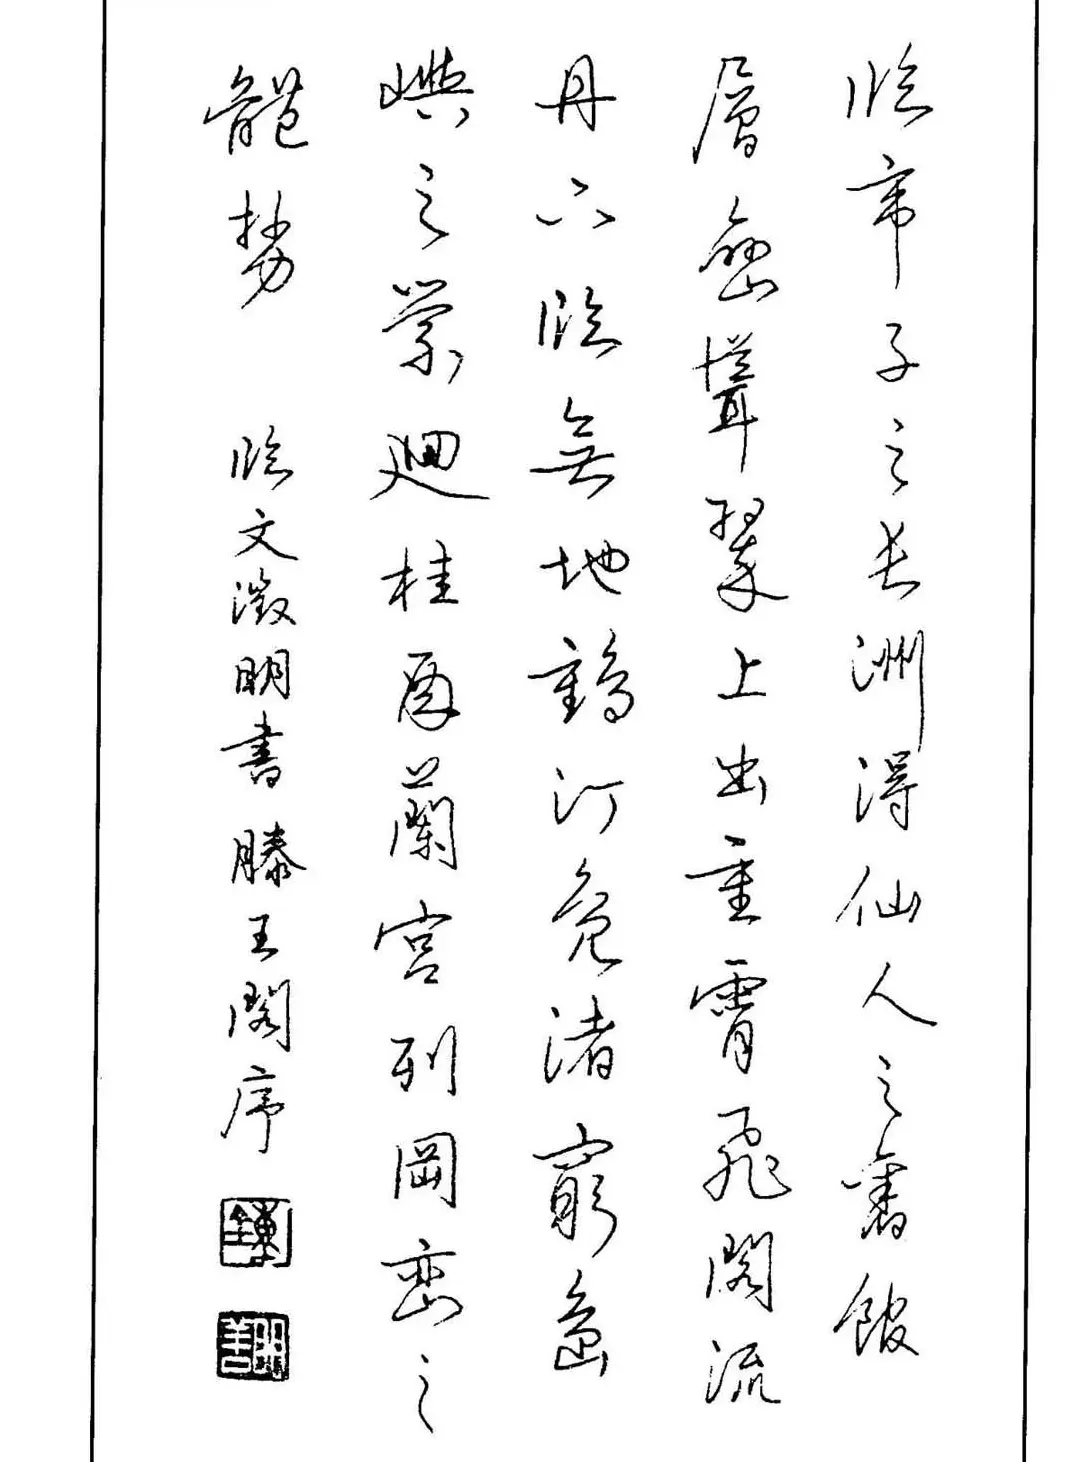 臨帝子之長洲得仙人之舊館
層巒聳翠上出重霄飛閣流
丹下臨無地鶴汀鳧渚窮島
嶼之縈迴桂殿蘭宮列岡巒之
體勢 臨文徵明書滕王閣序